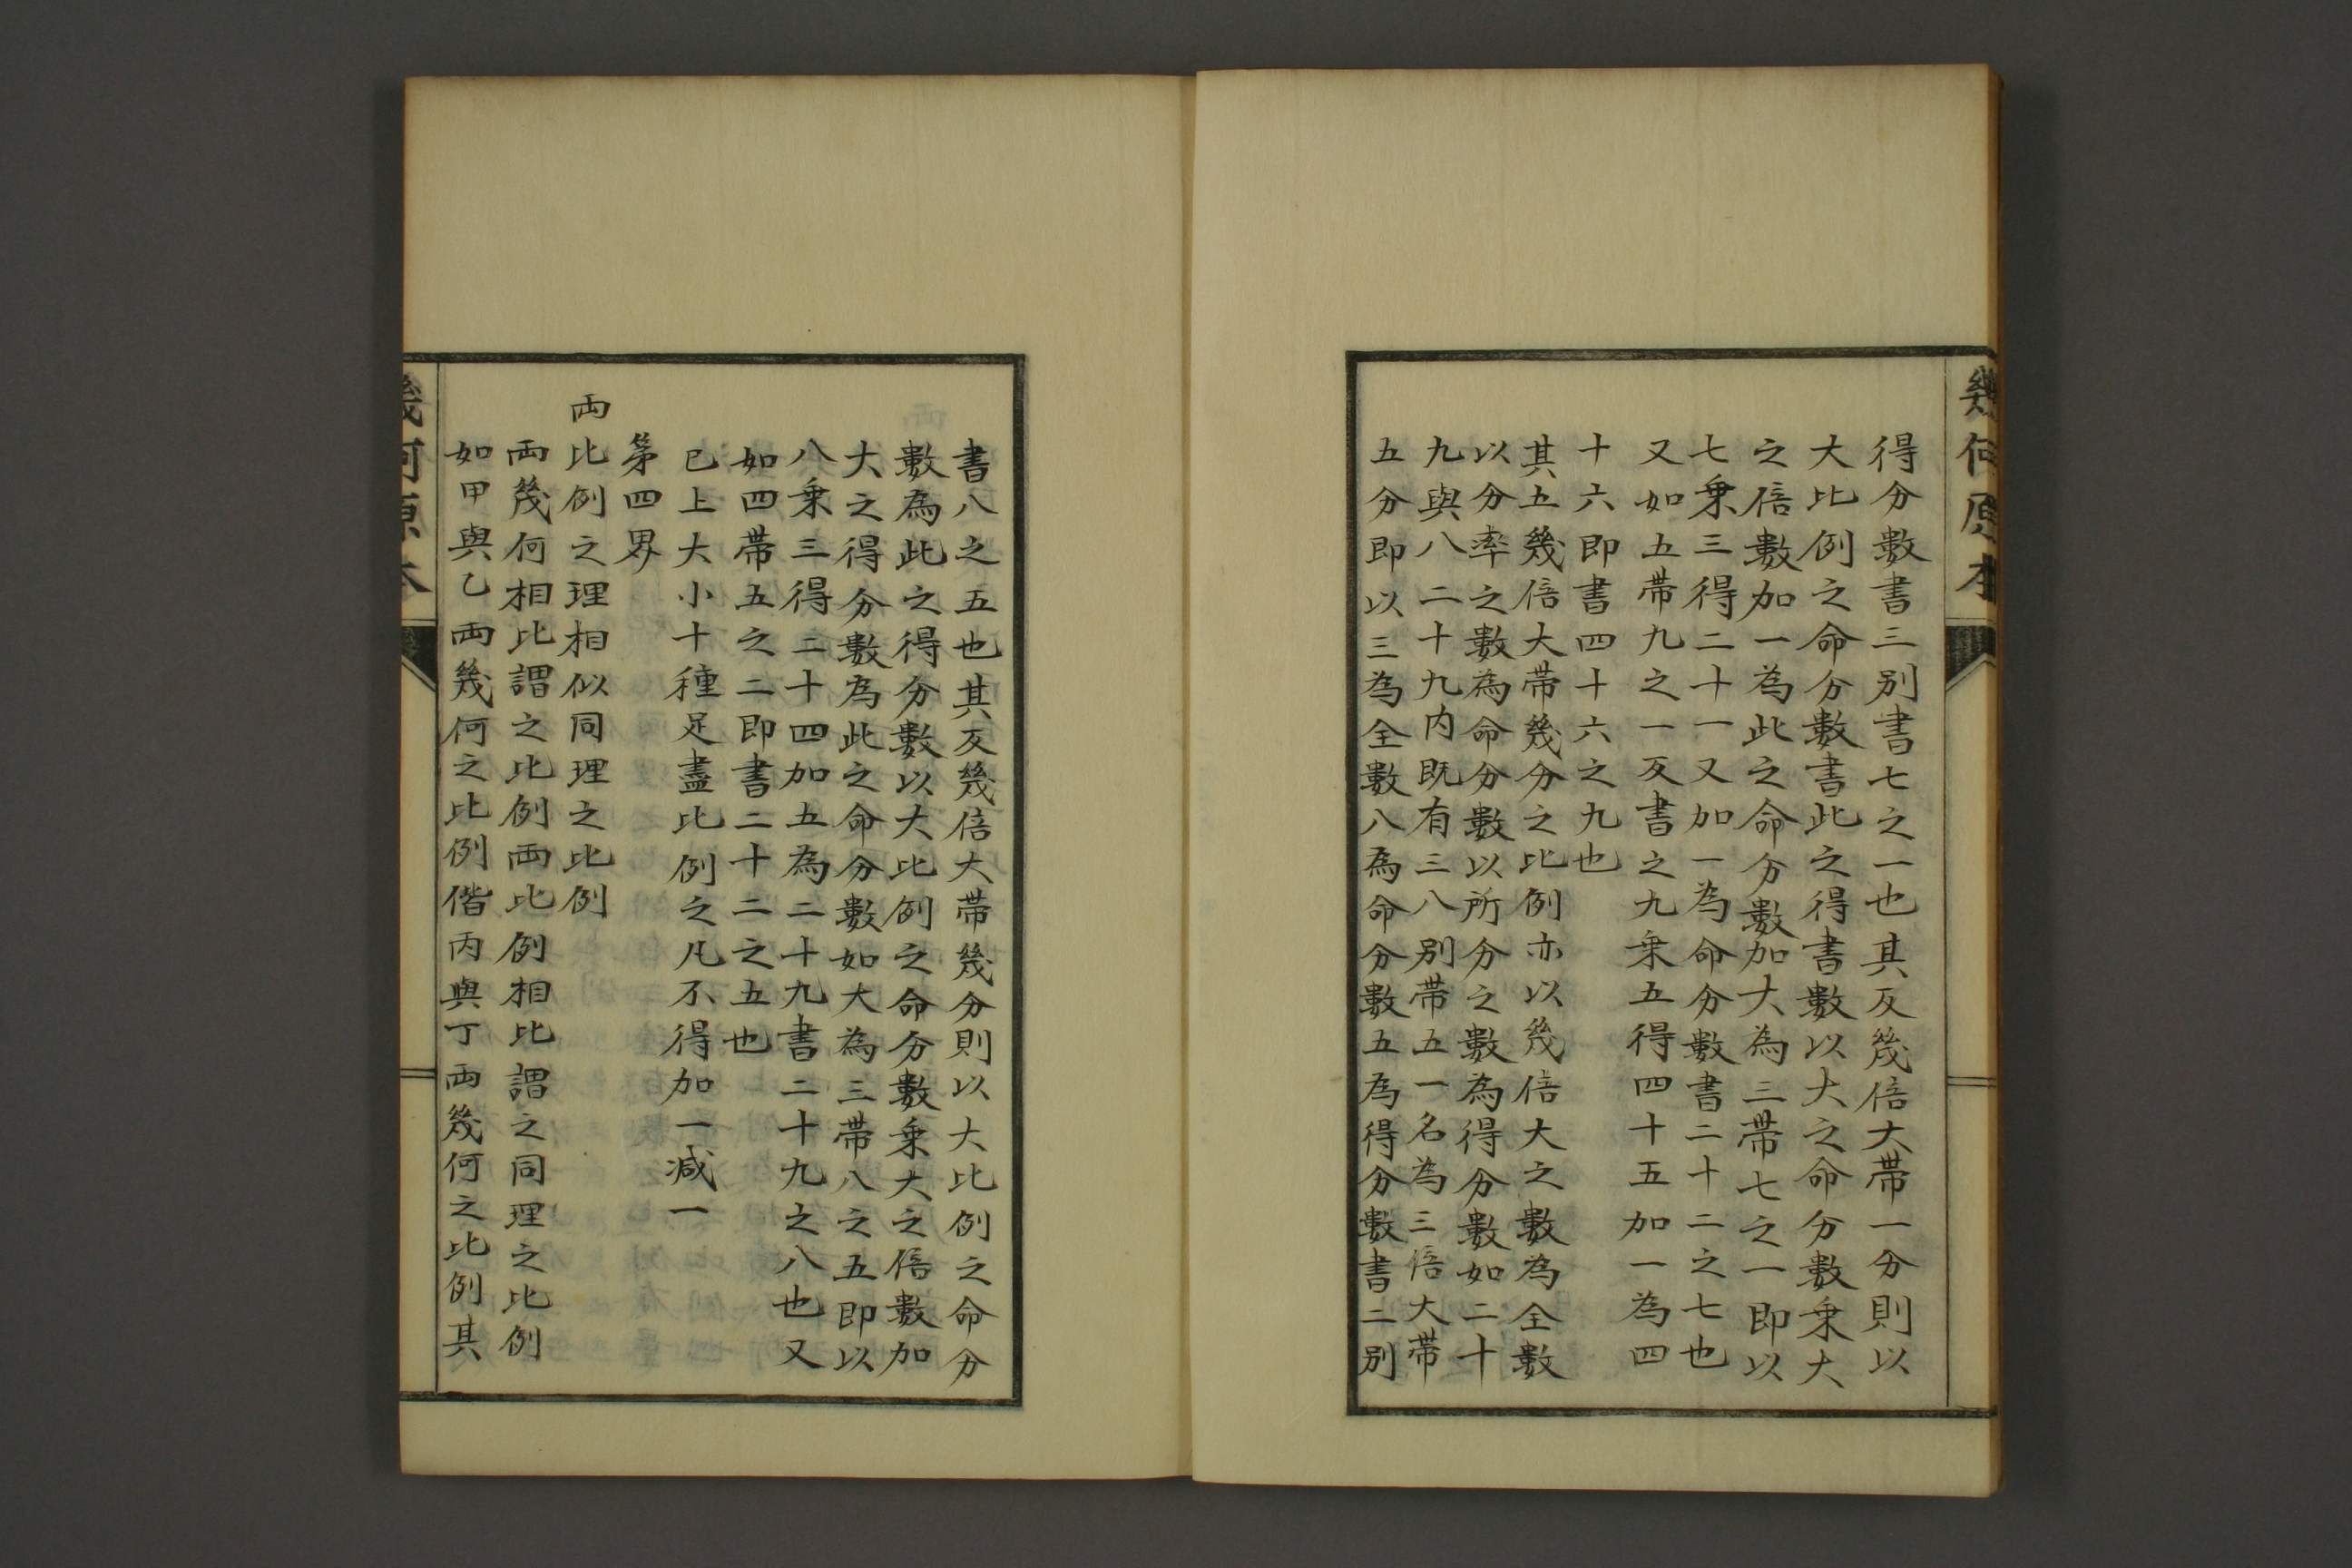 幾何原本
得分數書三別書七之一也其反幾倍大帶一分則以
大比例之命分數書此之得書數以大之命分數乗大
之倍數加一為此之命分數加大為三帶七之一即以
七乗三得二十一又加一為命分數書二十二之七也
又如五帶九之一反書之九乗五得四十五加一為四
十六即書四十六之九也
其五幾倍大帶幾分之比例亦以幾倍大之數為全數
以分率之數為命分數以所分之數為得分數如二十
九與八二十九内既有三八別帶五一名為三倍大帶
五分即以三為全數八為命分數五為得分數書二別
書八之五也其反幾倍大帶幾分則以大比例之命分
數為此之得分數以大比例之命分數乗大之倍數加
大之得分數為此之命分數如大為三帶八之五即以
八乗三得二十四加五為二十九書二十九之八也又
如四帶五之二即書二十二之五也
已上大小十種足盡比例之凡不得加一減一
第四界
両比例之理相似同理之比例
両幾何相比謂之比例両比例相比謂之同理之比例
如甲與乙両幾何之比例偕丙與丁両幾何之比例其
幾何原本